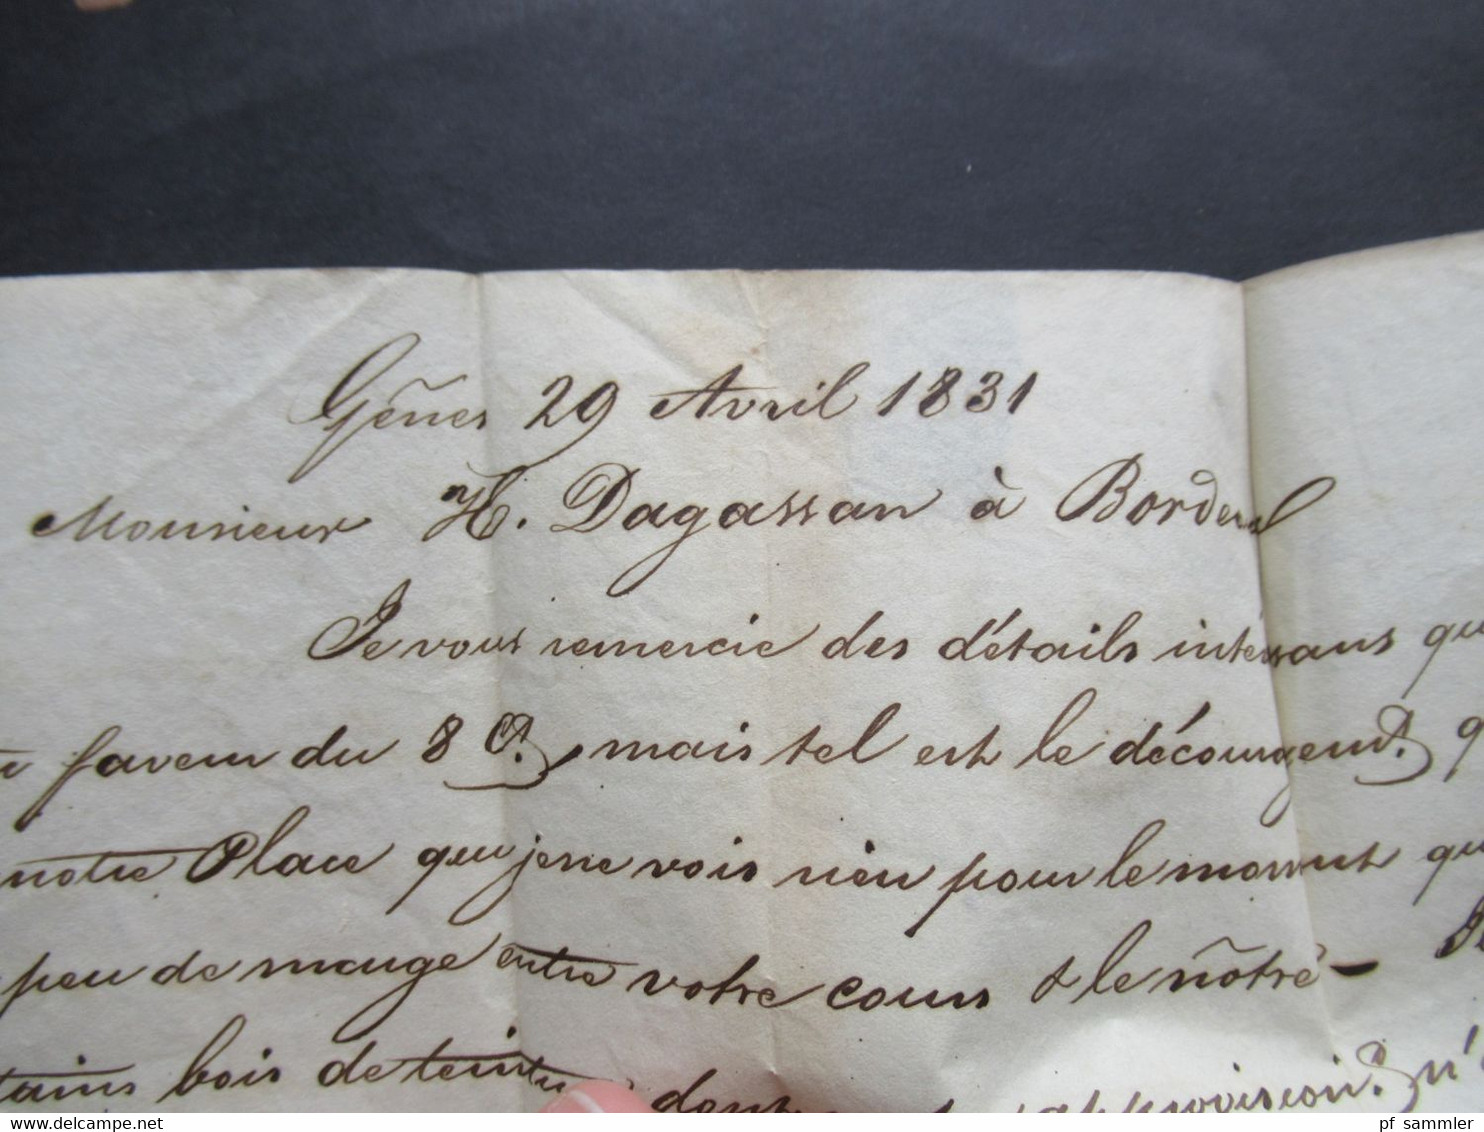 Gênes 29 Avril 1831
Monsieur H. Dagassan à Bordeaux
Je vous remercie des détails intéressans qu
faveur du 8 Ct., mais tel est le découragemt. q
notre Place que je ne vois rien pour le moment qu
peu de marge entre votre cours & le nôtre –
tains bois de teinture dont approvisiont. qu'
pf_sammler